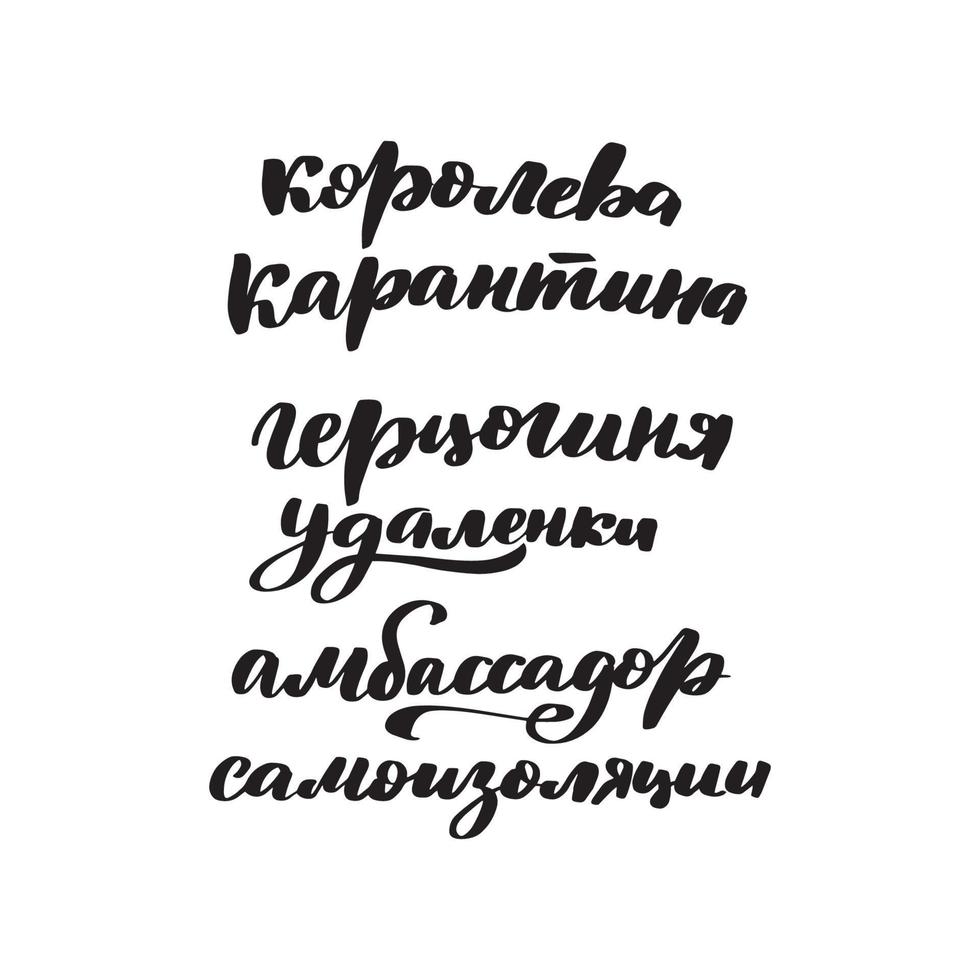 королева
карантина
герцогиня
удаленки
амбассадор
самоизоляции